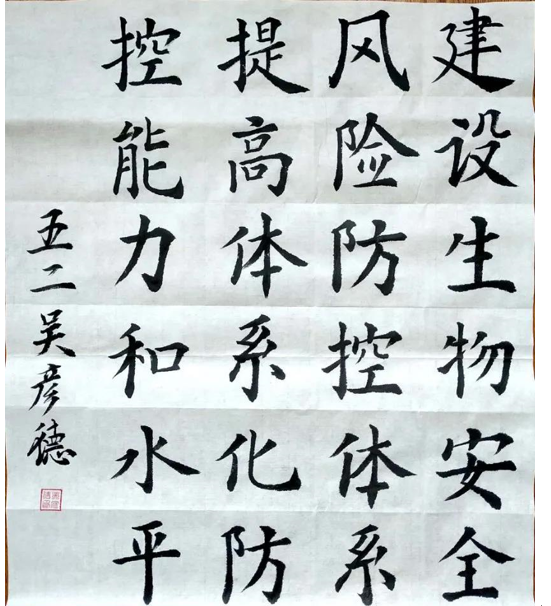 建设生物安全
风险防控体系
提高体系化防
控能力和水平
五二吴彦德